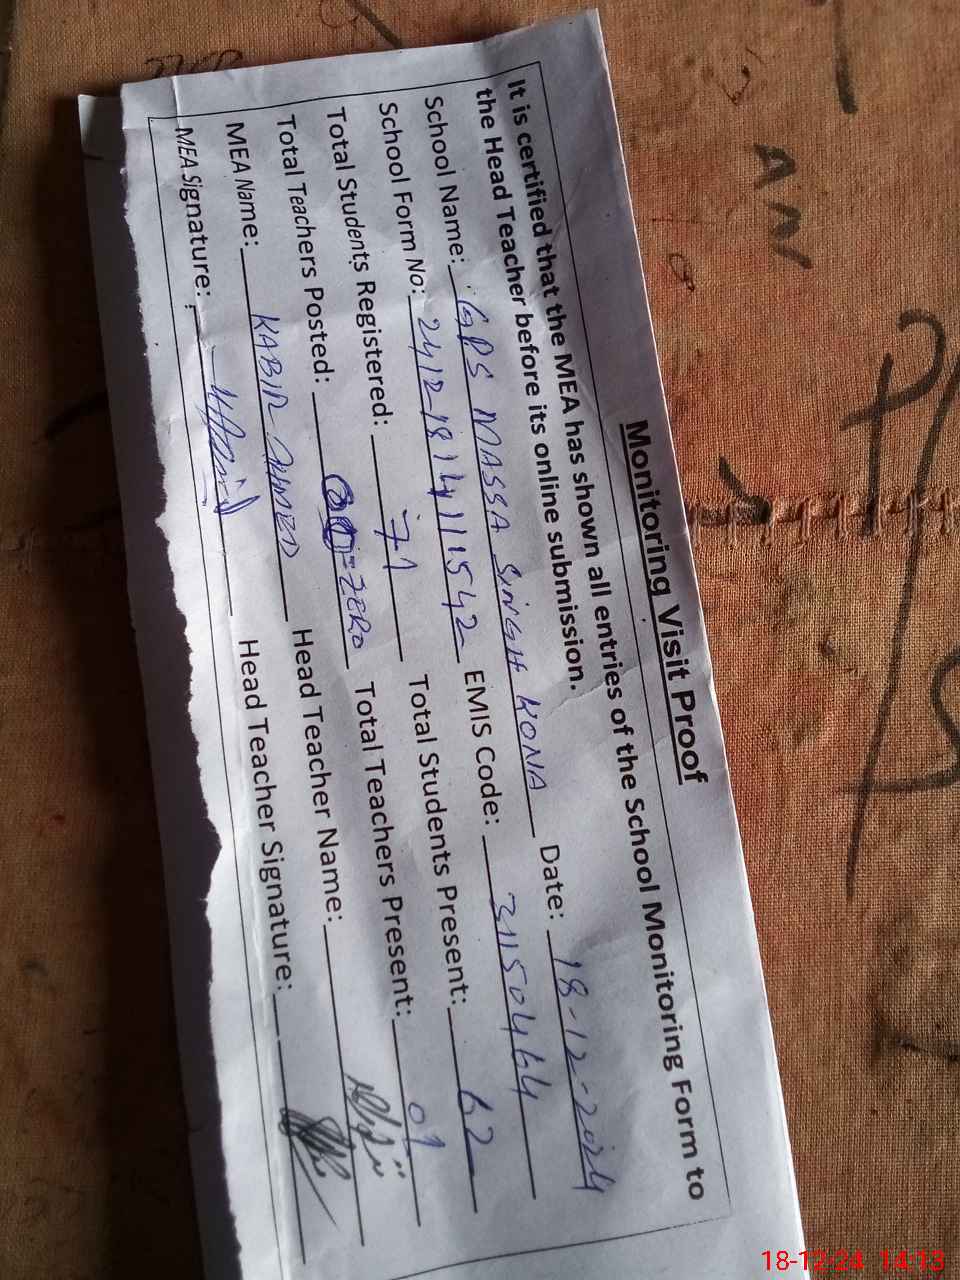 Monitoring Visit Proof
It is certified that the MEA has shown all entries of the School Monitoring Form to
the Head Teacher before its online submission.
School Name: GPS MASSA SINGH KONA Date: 18-12-2024
School Form No: 24121814111542 EMIS Code: 31150464
Total Students Registered: 71 Total Students Present: 62
Total Teachers Posted: ZERO Total Teachers Present: 01
MEA Name: KABIR AHMED Head Teacher Name:
MEA Signature: Head Teacher Signature:
18-12-24 14:13